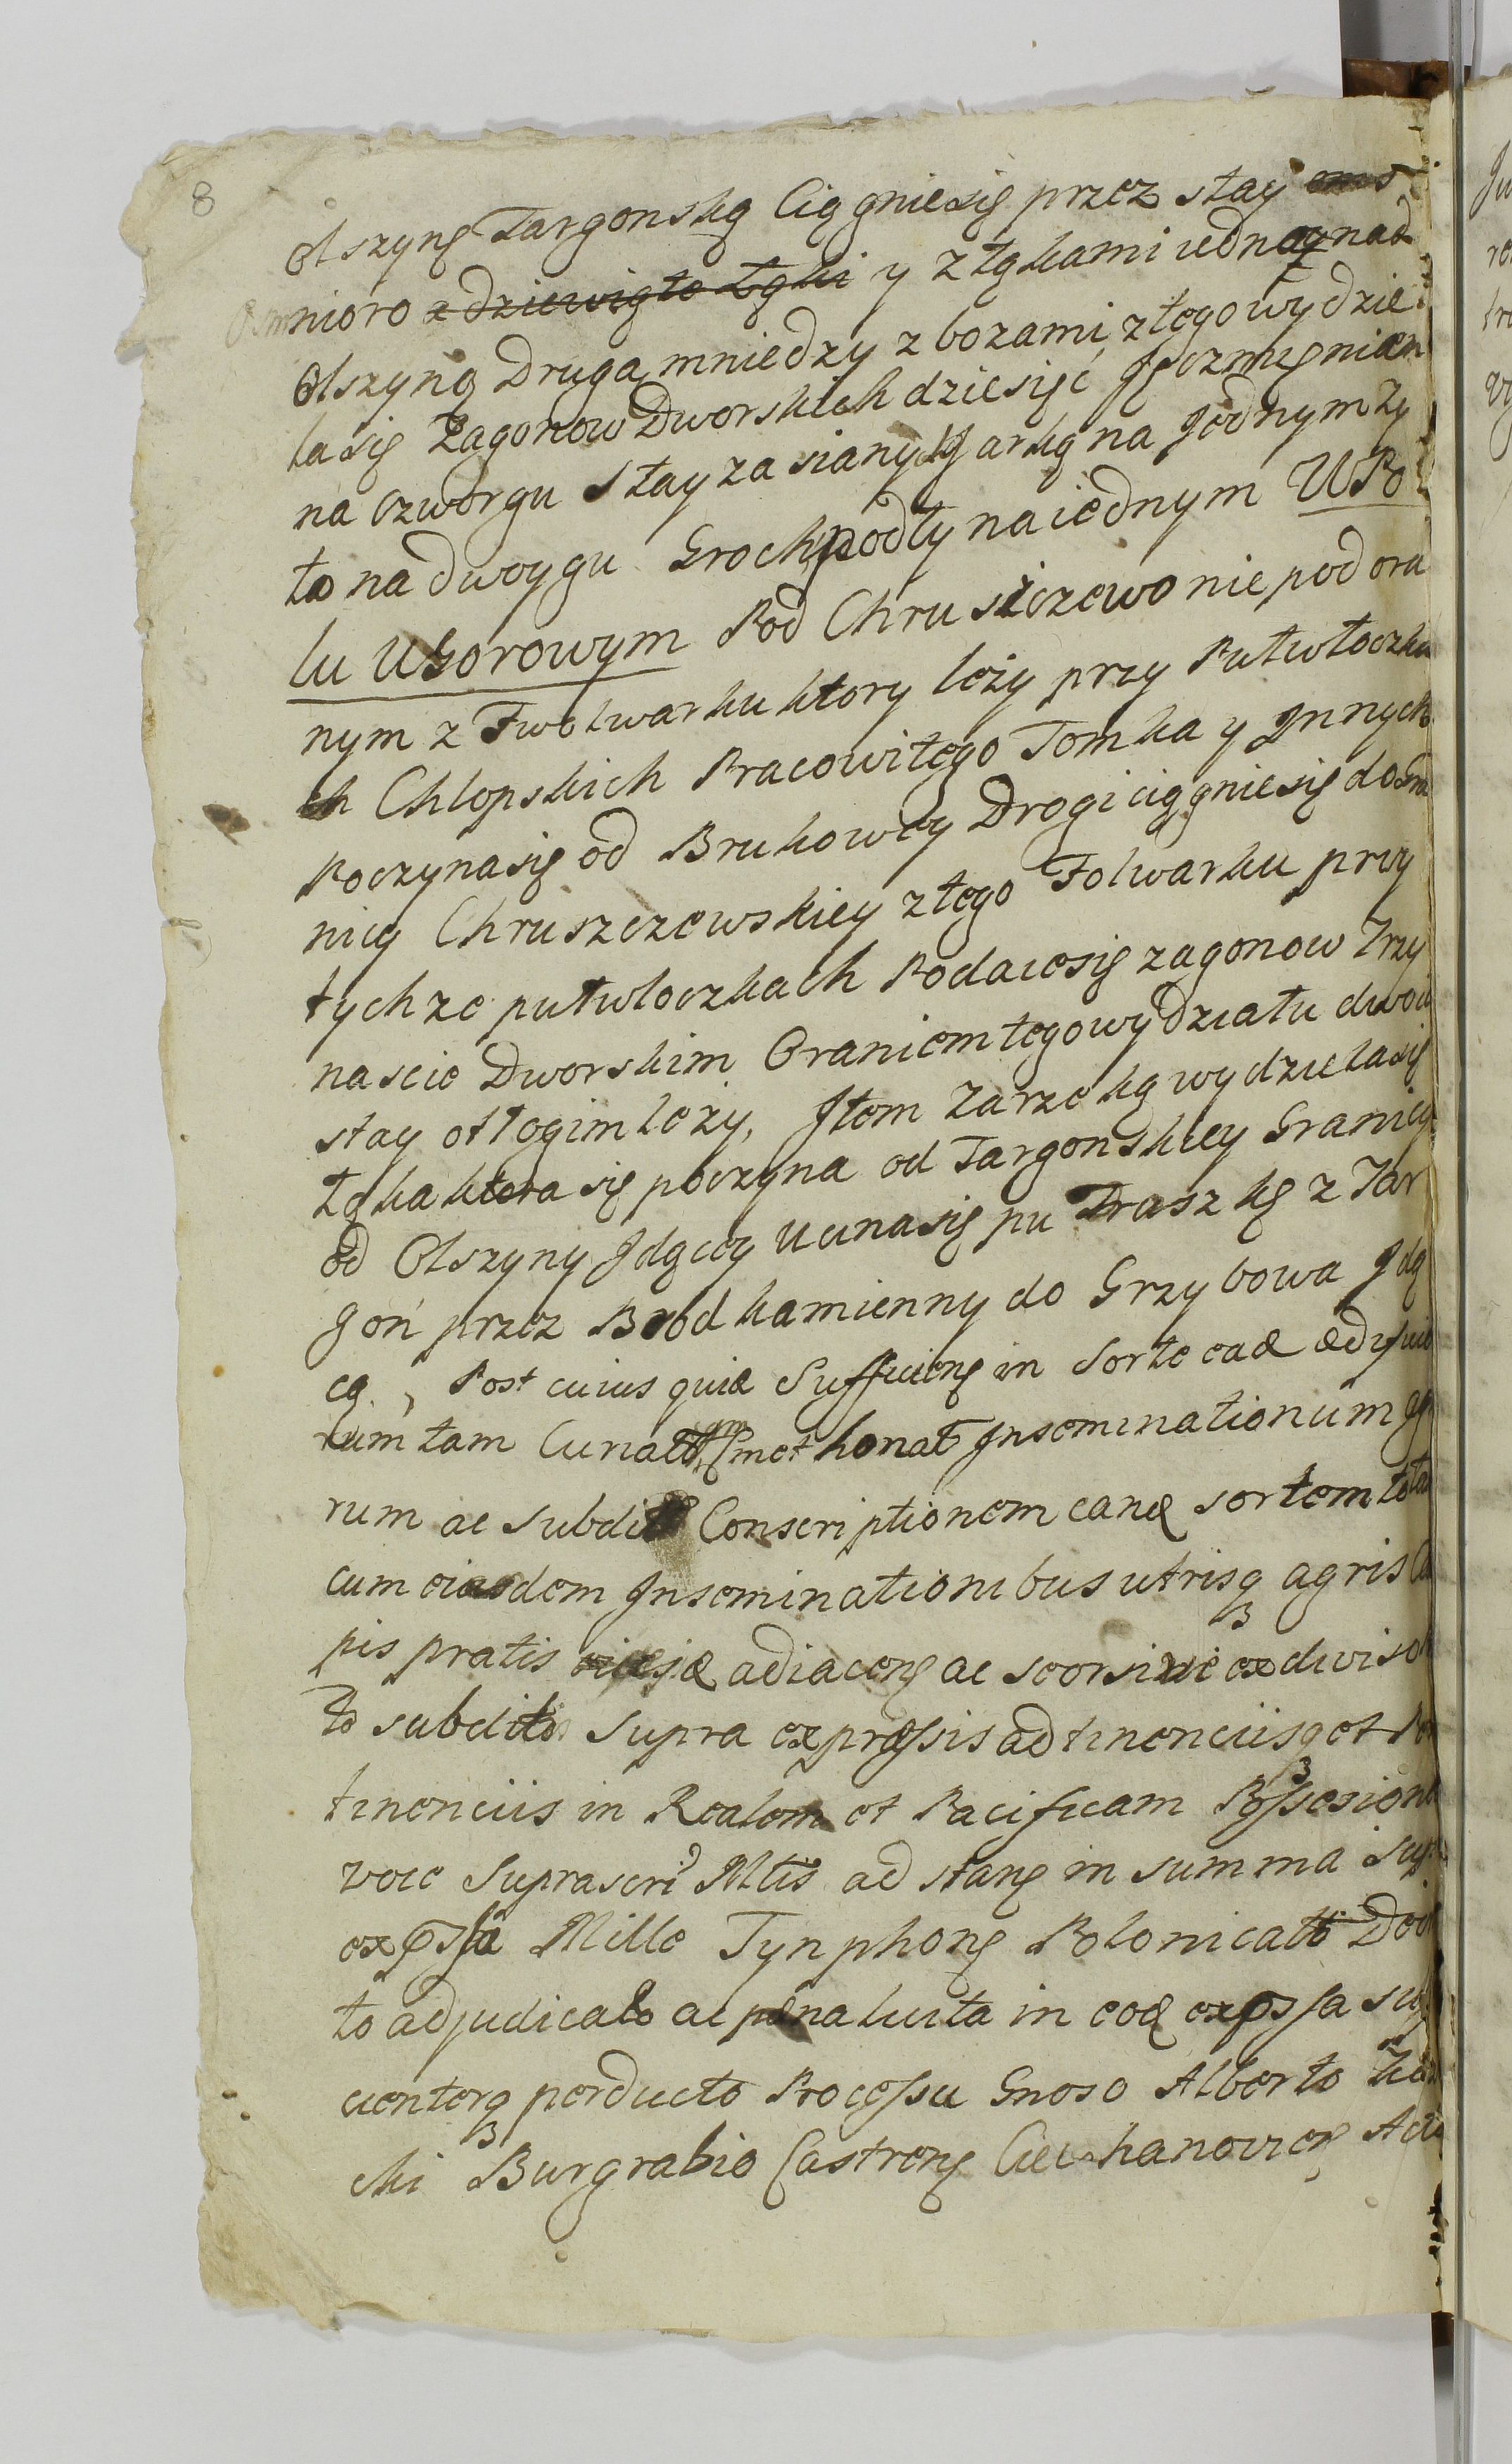 8
Olszynę Targonską Ciągniesię przez stay
Osmnioro z dziewiąto Łąki y z łąkami iedną nad
Olszyną Drugą mniedzy zbozami, ztego wydzie
la się Zagonow Dworskich dziesięć Jęczmęnien
na czworgu stay zasiany Jarką na Jednym Zy
to na dwoygu Groch podły na iednym W Po
lu Ugorowym Pod Chruszczewo nie podora
nym z Fwolwarku ktory leży przy Putwłoczka
ch Chlopskich Pracowitego Tomka y Jnnych
Poczynasię od Brukowey Drogi ciągniesię do Gra
nicy Chruszczewskiey ztego Folwarku przy
tychze putwloczkach Podaiesię zagonow Trzy
nascie Dworskim Oraniem tego wydziału dwoie
stay otłogim leży, Jtem Zarzeką wydzielasię
Łąka ktora się poczyna od Targonskiey Granicy
od Olszyny Jdącey Ucinasię pu Draszkę z Tar
gon przez Brod kamienny do Grzybowa Jdą
cą, Post cuius quid Sufficieng in Sorte eade ædificio
rum tam Curial quam Cmethonal Jnseminationum Ag
rum ac subdit Conscriptionem eand sortem tota
cum eiusdem Jnseminationibus utrisq agris Ca
pis pratis adiaceng ac seorsive ex diviso
to subdito Supra expræssis adtinenciisq et Per
tinenciis in Realem et Pacificam Possesione
voie Suprascri Mtis ad stang in summa sup
expssa Mille Tynphong Polonicał Dec
to adjudicato ac pæna luita in eod expssa suf
cienterq perducto Processu Gnoso Alberto
cki Burgrabio Castreng Ciechanovieng